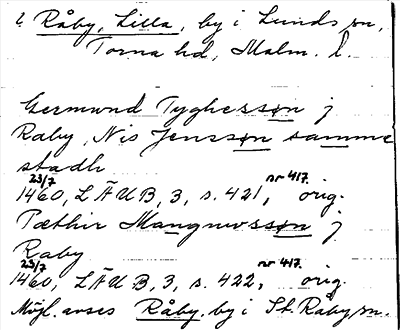 ? Råby, Lilla, by i Lunds sn,
Torna hd, Malm. l.
Germund Tyghessøn j
Raby, Nis Jenssøn samme
stadh
23/7 nr 417.
1460, LÄUB, 3, s. 421, orig.
Pæther Mangnussøn j
Raby
23/7 nr 417.
1460, LÄUB, 3, s. 422, orig.
Möjl. avses Råby, by i St. Raby sn.